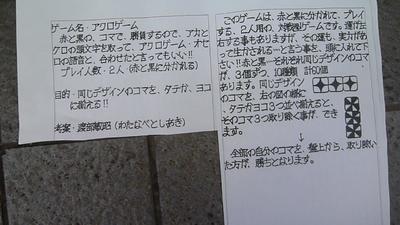 ゲーム名・アクロゲーム
赤と黒の、コマで、勝負するので、アカと
クロの頭文字を取って、アクロゲーム・オセ
ロの語音と、合わせたと言ってもいい!!
プレイ人数・2人(赤と黒に分かれる)
目的・同じデザインのコマを、タテか、ヨコ
に揃える!!
考案・渡部敏昭(わたなべとしあき)
このゲームは、赤と黒に分かれて、プレイ
する、2人用の、対戦型ゲームです。運が左
右する事もありますが、その運も、実力があ
って生かされるーと言う事を、頭に入れて下
さい!!赤と黒ーそれぞれ同じデザインのコマ
が、3個ずつ、10種類 計60個
あります。同じデザイン
のコマを、左の図の様に
、タテかヨコ3つ並べ揃えると、
そのコマ3つ取り除く事が、でき
ます。
↓
全部の自分のコマを、盤上から、取り除い
た方が、勝ちとなります。